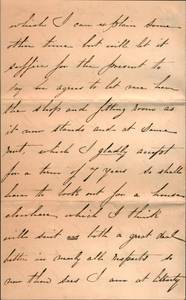 which I can explain some
other time but will let it
suffice for the present to
say he agrees to let me have
the shop and fitting room as
it now stands and at same
rent, which I gladly accept
for a term of 7 years so shall
have to look out for a house
elsewhere, which I think
will suit us both a great deal
better in nearly all respects so
now then sees I am at liberty